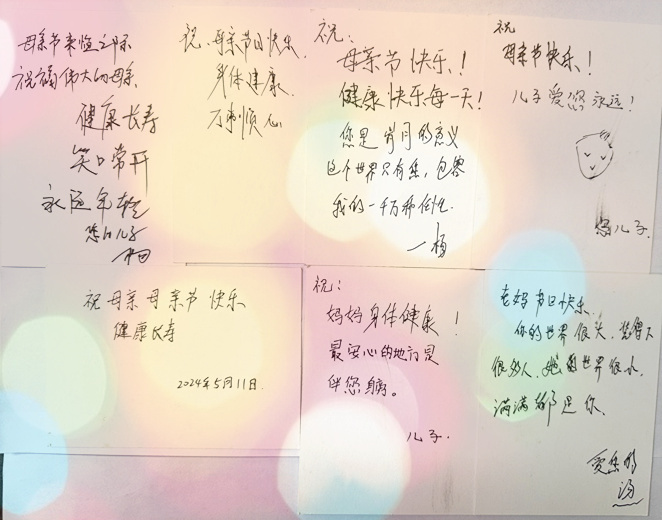 母亲节来临之际
祝福伟大的母亲
健康长寿
笑口常开
永远年轻
您的儿子
祝:母亲节日快乐
身体健康
万事顺心
祝:
母亲节快乐!
健康快乐每一天!
您是岁月的意义
这个世界只有您,包容
我的一千万种任性.
一杨
祝
母亲节快乐!
儿子爱您永远!
您儿子.
祝母亲母亲节快乐
健康长寿
2024年5月11日.
祝:
妈妈身体健康!
最安心的地方是
伴您身旁。
儿子.
老妈节日快乐.
你的世界很大,装得下
很多人,她的世界很小,
满满都是你.
爱您的
汤